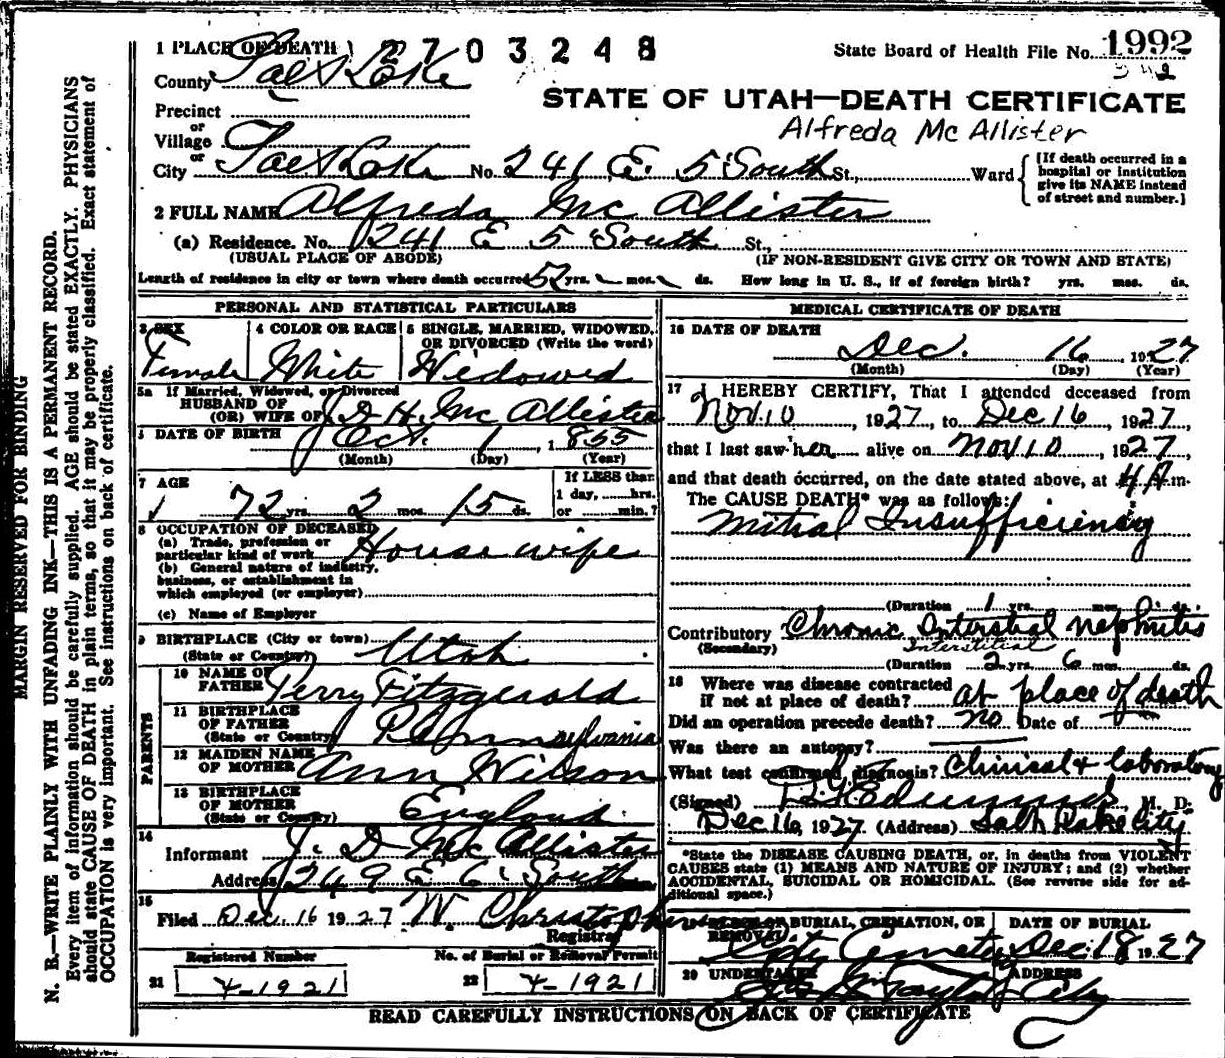 1 PLACE OF DEATH 2703248 State Board of Health File No. 1992
County Salt Lake 342
STATE OF UTAH—DEATH CERTIFICATE
Precinct
or
Alfreda McAllister
Village
or
City Salt Lake No. 241 E. 5 South St., Ward
[If death occurred in a hospital or institution give its NAME instead of street and number.]
2 FULL NAME Alfreda McAllister
(a) Residence. No. 241 E 5 South St.,
(USUAL PLACE OF ABODE) (IF NON-RESIDENT GIVE CITY OR TOWN AND STATE)
Length of residence in city or town where death occurred 52 yrs. mos. ds. How long in U. S., if of foreign birth? yrs. mos. ds.
PERSONAL AND STATISTICAL PARTICULARS
3 SEX
Female
4 COLOR OR RACE
White
5 SINGLE, MARRIED, WIDOWED, OR DIVORCED (Write the word)
Widowed
5a If Married, Widowed, or Divorced
HUSBAND OF
(OR) WIFE OF J D H. McAllister
DATE OF BIRTH Oct. 1, 1855
(Month) (Day) (Year)
7 AGE
72 yrs. 2 mos. 15 ds.
If LESS than
1 day, hrs.
or min.?
8 OCCUPATION OF DECEASED
(a) Trade, profession or
particular kind of work House wife
(b) General nature of industry,
business, or establishment in
which employed (or employer)
(c) Name of Employer
9 BIRTHPLACE (City or town)
(State or Country) Utah
PARENTS
10 NAME OF
FATHER Perry Fitzgerald
11 BIRTHPLACE
OF FATHER
(State or Country) Pennsylvania
12 MAIDEN NAME
OF MOTHER Ann Wilson
13 BIRTHPLACE
OF MOTHER
(State or Country) England
14
Informant J. D McAllister
Address 249 E 6 South
15
Filed Dec. 16 1927 W. Christopherson
Registrar
Registered Number No. of Burial or Removal Permit
21 4-1921 22 4-1921
MEDICAL CERTIFICATE OF DEATH
16 DATE OF DEATH
Dec. 16, 1927
(Month) (Day) (Year)
17 I HEREBY CERTIFY, That I attended deceased from
Nov. 10, 1927, to Dec 16, 1927,
that I last saw her alive on Nov 10, 1927,
and that death occurred, on the date stated above, at 4 A m.
The CAUSE DEATH* was as follows:
Mitral Insufficiency
(Duration 1 yrs. mos. ds.
Contributory Chronic Interstial nephritis
(Secondary) Interstitial
(Duration 2 yrs. 6 mos. ds.
18 Where was disease contracted
if not at place of death? at place of death
Did an operation precede death? no Date of
Was there an autopsy?
What test confirmed diagnosis? Clinical & laboratory
(Signed) M. D.
Dec 16, 1927 (Address) Salt Lake City
*State the DISEASE CAUSING DEATH, or, in deaths from VIOLENT
CAUSES state (1) MEANS AND NATURE OF INJURY; and (2) whether
ACCIDENTAL, SUICIDAL OR HOMICIDAL. (See reverse side for ad-
ditional space.)
BURIAL, CREMATION, OR REMOVAL DATE OF BURIAL
City Cemetery Dec 18 1927
20 UNDERTAKER ADDRESS
Taylor City
READ CAREFULLY INSTRUCTIONS ON BACK OF CERTIFICATE
MARGIN RESERVED FOR BINDING
N. B.—WRITE PLAINLY WITH UNFADING INK—THIS IS A PERMANENT RECORD.
Every item of information should be carefully supplied. AGE should be stated EXACTLY. PHYSICIANS
should state CAUSE OF DEATH in plain terms, so that it may be properly classified. Exact statement of
OCCUPATION is very important. See instructions on back of certificate.